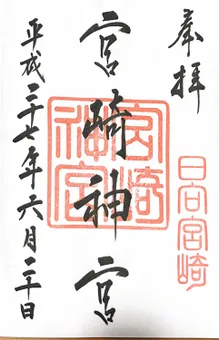 奉拝
日向宮崎
宮崎神宮
宮崎神宮
平成二十七年六月二十日